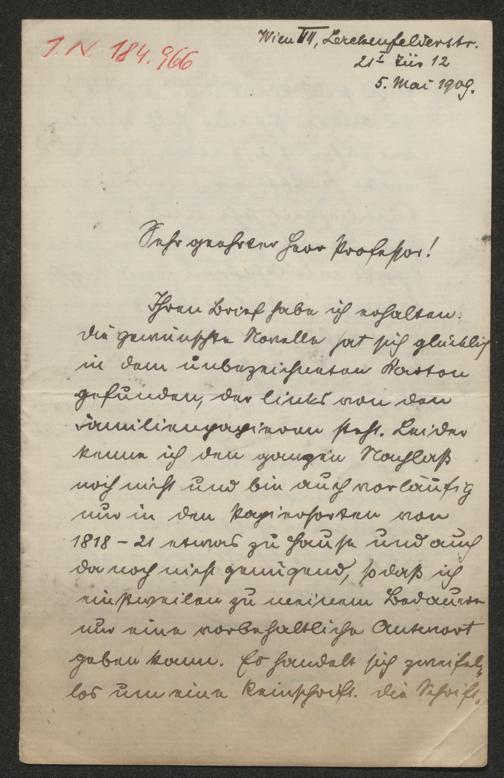 I. N. 184.966
Wien VII, Lerchenfelderstr.
21 I Tür 12
5. Mai 1909.
Sehr geehrter Herr Professor!
Ihren Brief habe ich erhalten.
Die gewünschte Novelle hat sich glücklich
in dem unbezeichneten Karton
gefunden, der links von den
Familienpapieren steht. Leider
kenne ich den ganzen Nachlaß
noch nicht und bin auch vorläufig
nur in den Papiersorten von
1818 – 21 etwas zu Hause und auch
da noch nicht genügend, so daß ich
einstweilen zu meinem Bedauern
nur eine vorbehaltliche Antwort
geben kann. Es handelt sich zweifel-
los um eine Reinschrift. Die Schrift,